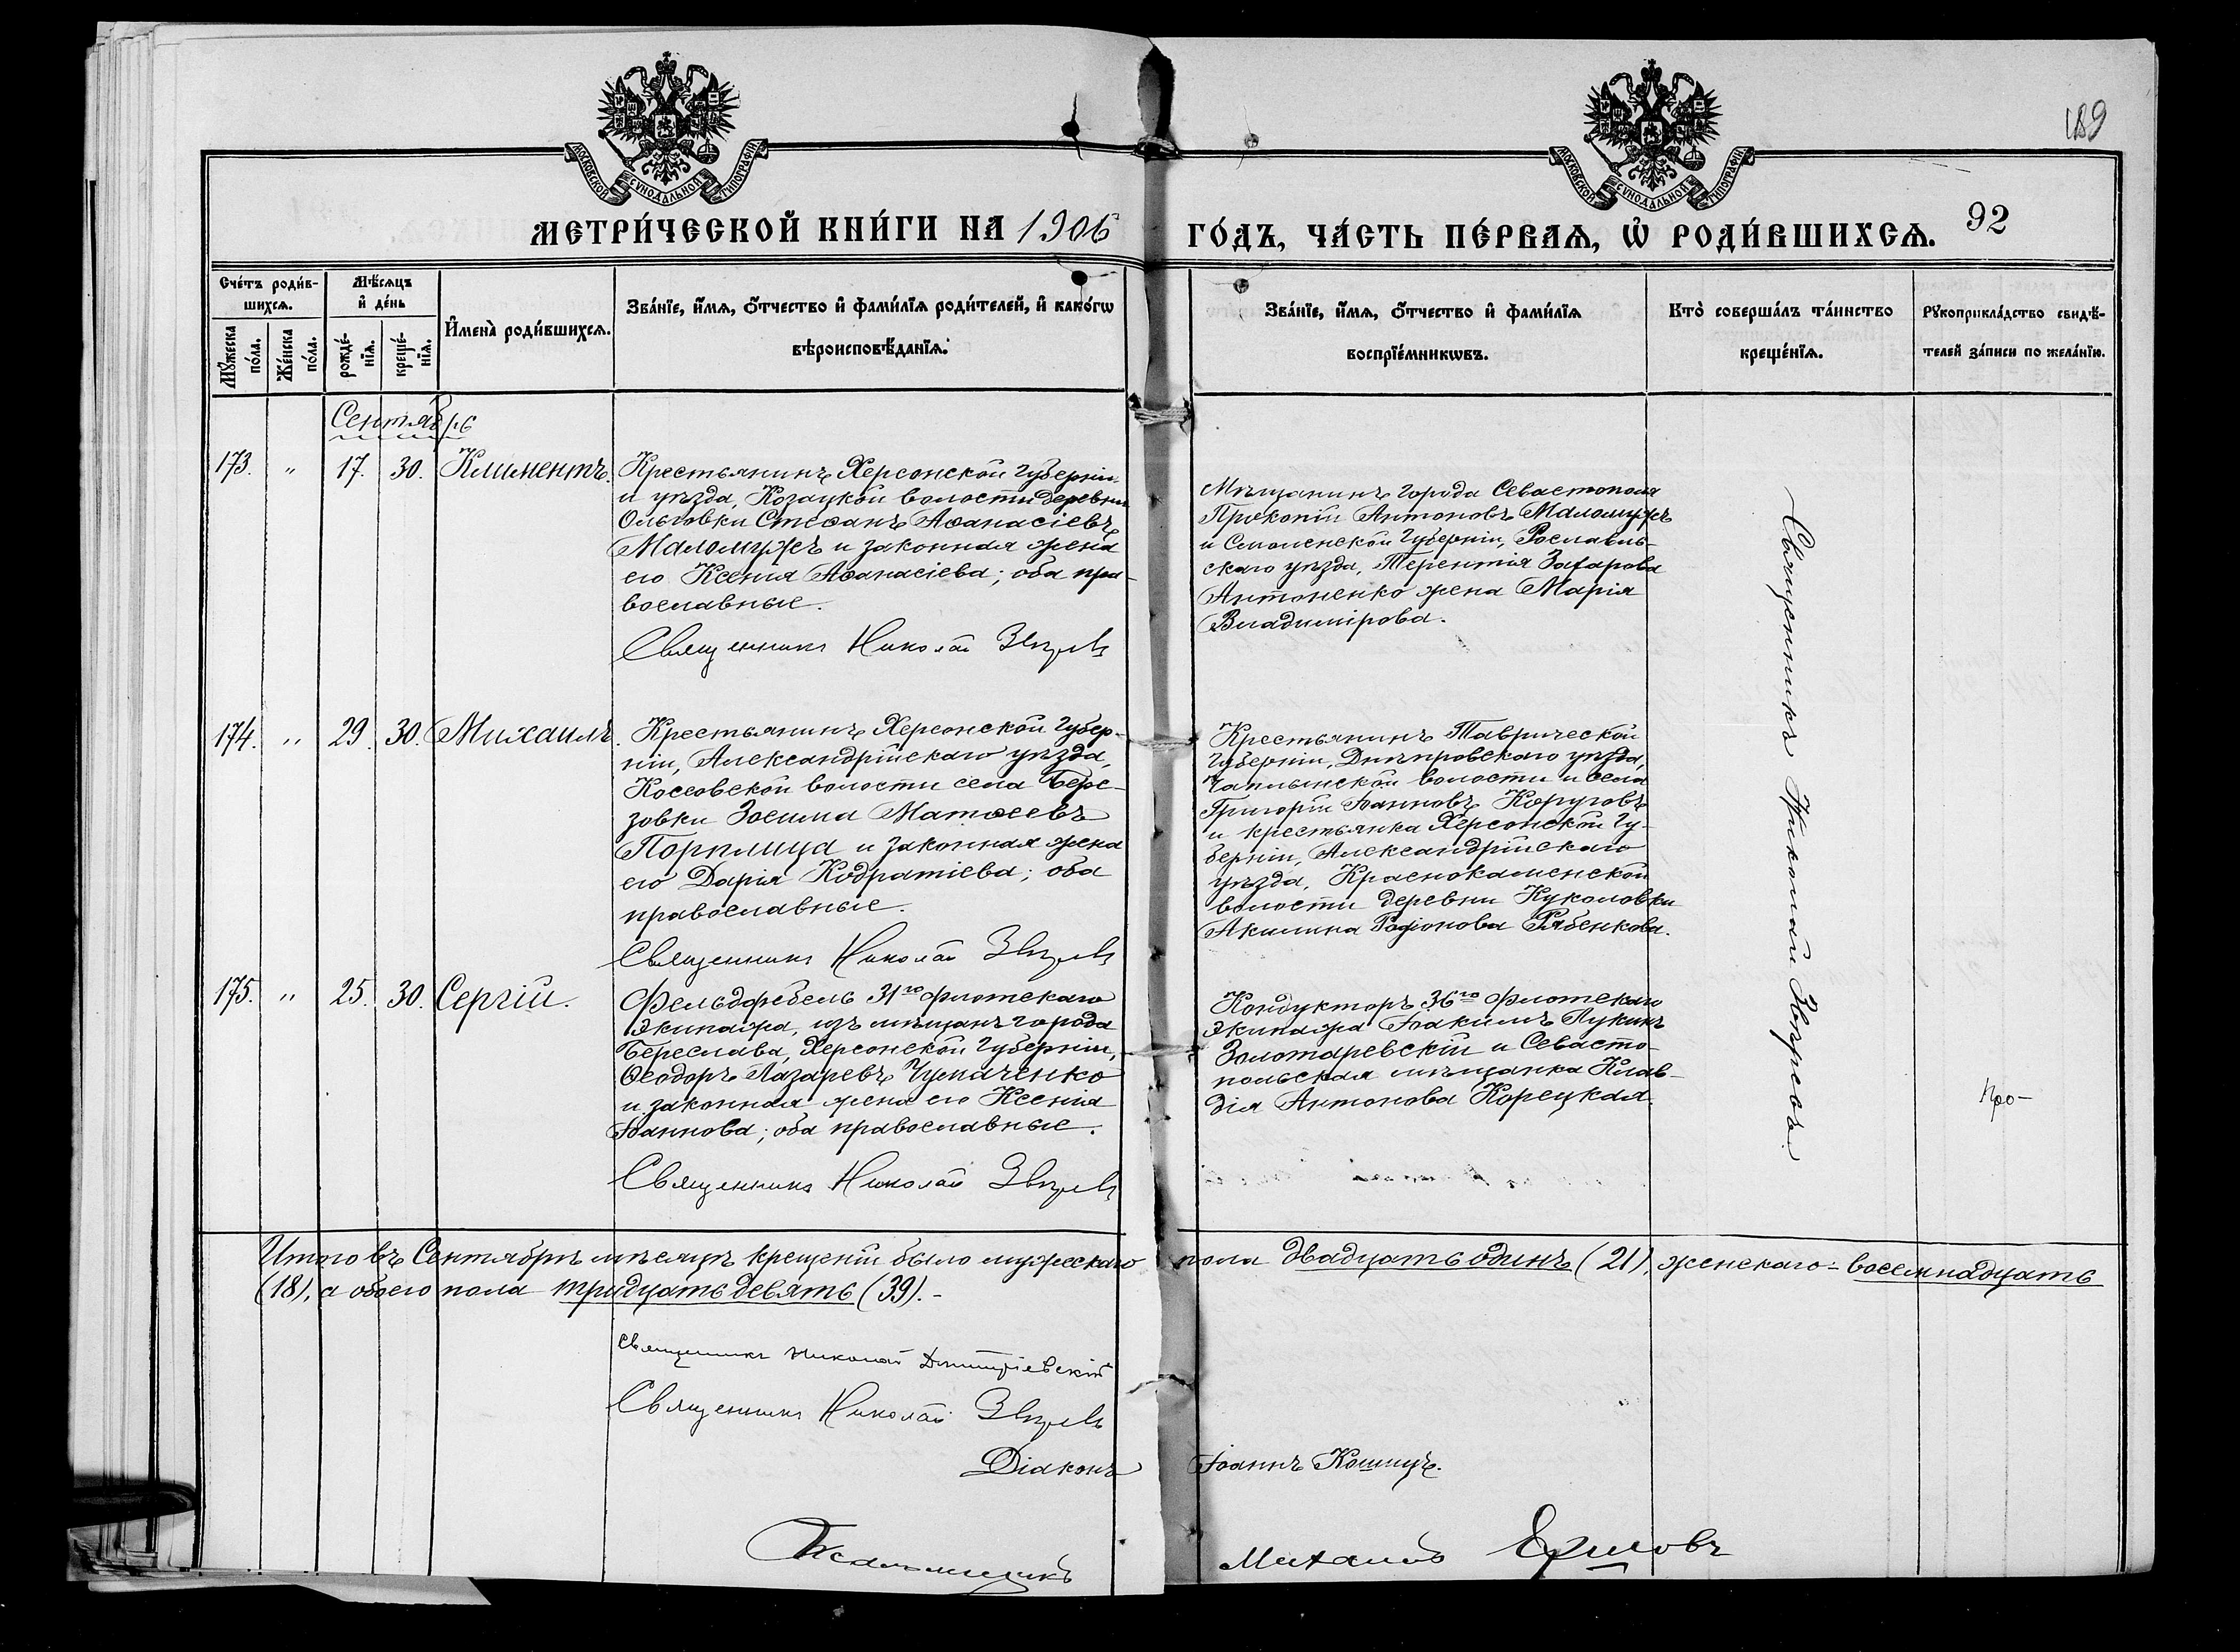 189
МОСКОВСКОЙ СУНОДАЛЬНОЙ ТИПОГРАФІИ
МОСКОВСКОЙ СУНОДАЛЬНОЙ ТИПОГРАФІИ
МЕТРИ́ЧЕСКОЙ КНИ́ГИ НА 1906
ГО́ДЪ, ЧА́СТЬ ПЕ́РВАѦ, Ѡ҆ РОДИ́ВШИХСѦ. 92
Сче́тъ роди́в-
шихсѧ.
Мꙋ́жеска
по́ла.
Же́нска
по́ла.
Мѣ́сѧцъ
и҆ де́нь
рожде́-
нїѧ.
креще́-
нїѧ.
И҆мена̀ роди́вшихсѧ.
Зва́нїе, и҆́мѧ, ѻ҆́тчество и҆ фами́лїѧ роди́телей, и҆ како́гѡ
вѣроисповѣ́данїѧ.
Зва́нїе, и҆́мѧ, ѻ҆́тчество и҆ фами́лїѧ
воспрїе́мникѡвъ.
Кто̀ соверша́лъ та́инство
креще́нїѧ.
Рꙋкоприкла́дство свидѣ́-
телей за́писи по жела́нїю.
Сентябрь
173. " 17. 30. Климентъ.
Крестьянинъ Херсонской губерніи
и уѣзда, Козацкой волости деревни
Ольговки Стефанъ Аѳанасіевъ
Маломужъ и законная жена
его Ксенія Аѳанасіева; оба пра-
вославные.
Священникъ Николай Звѣревъ
Мѣщанинъ города Севастополя
Прокопій Антоновъ Маломужъ
и Смоленской губерніи, Рославль-
скаго уѣзда, Терентія Захарова
Антоненко жена Марія
Владимірова.
Священникъ Николай Звѣревъ.
174. " 29. 30. Михаилъ.
Крестьянинъ Херсонской губер-
ніи, Александрійскаго уѣзда,
Косовской волости села Бере-
зовки Зосима Матѳеевъ
Порплица и законная жена
его Дарія Кодратіева; оба
православные.
Священникъ Николай Звѣревъ
Крестьянинъ Таврической
губерніи, Днѣпровскаго уѣзда,
Чаплынской волости и села
Григорій Іоанновъ Коруговъ
и крестьянка Херсонской гу-
берніи, Александрійскаго
уѣзда, Краснокаменской
волости деревни Куколовки
Акилина Родіонова Рябенкова.
175. " 25. 30. Сергій.
Фельдфебель 31го флотскаго
экипажа, изъ мѣщанъ города
Береслава, Херсонской губерніи,
Ѳеодоръ Лазаревъ Чумаченко
и законная жена его Ксенія
Іоаннова; оба православные.
Священникъ Николай Звѣревъ
Кондукторъ 36го флотскаго
экипажа Іоакимъ Лукинъ
Золотаревскій и Севасто-
польская мѣщанка Клав-
дія Антонова Корецкая.
Итого въ Сентябрѣ мѣсяцѣ крещеній было мужескаго пола двадцать одинъ (21), женскаго - восемнадцать
(18), а обоего пола тридцать девять (39). -
Священникъ Николай Димитріевскій
Священникъ Николай Звѣревъ
Діаконъ Іоаннъ Кошицъ.
Псаломщикъ Михаилъ